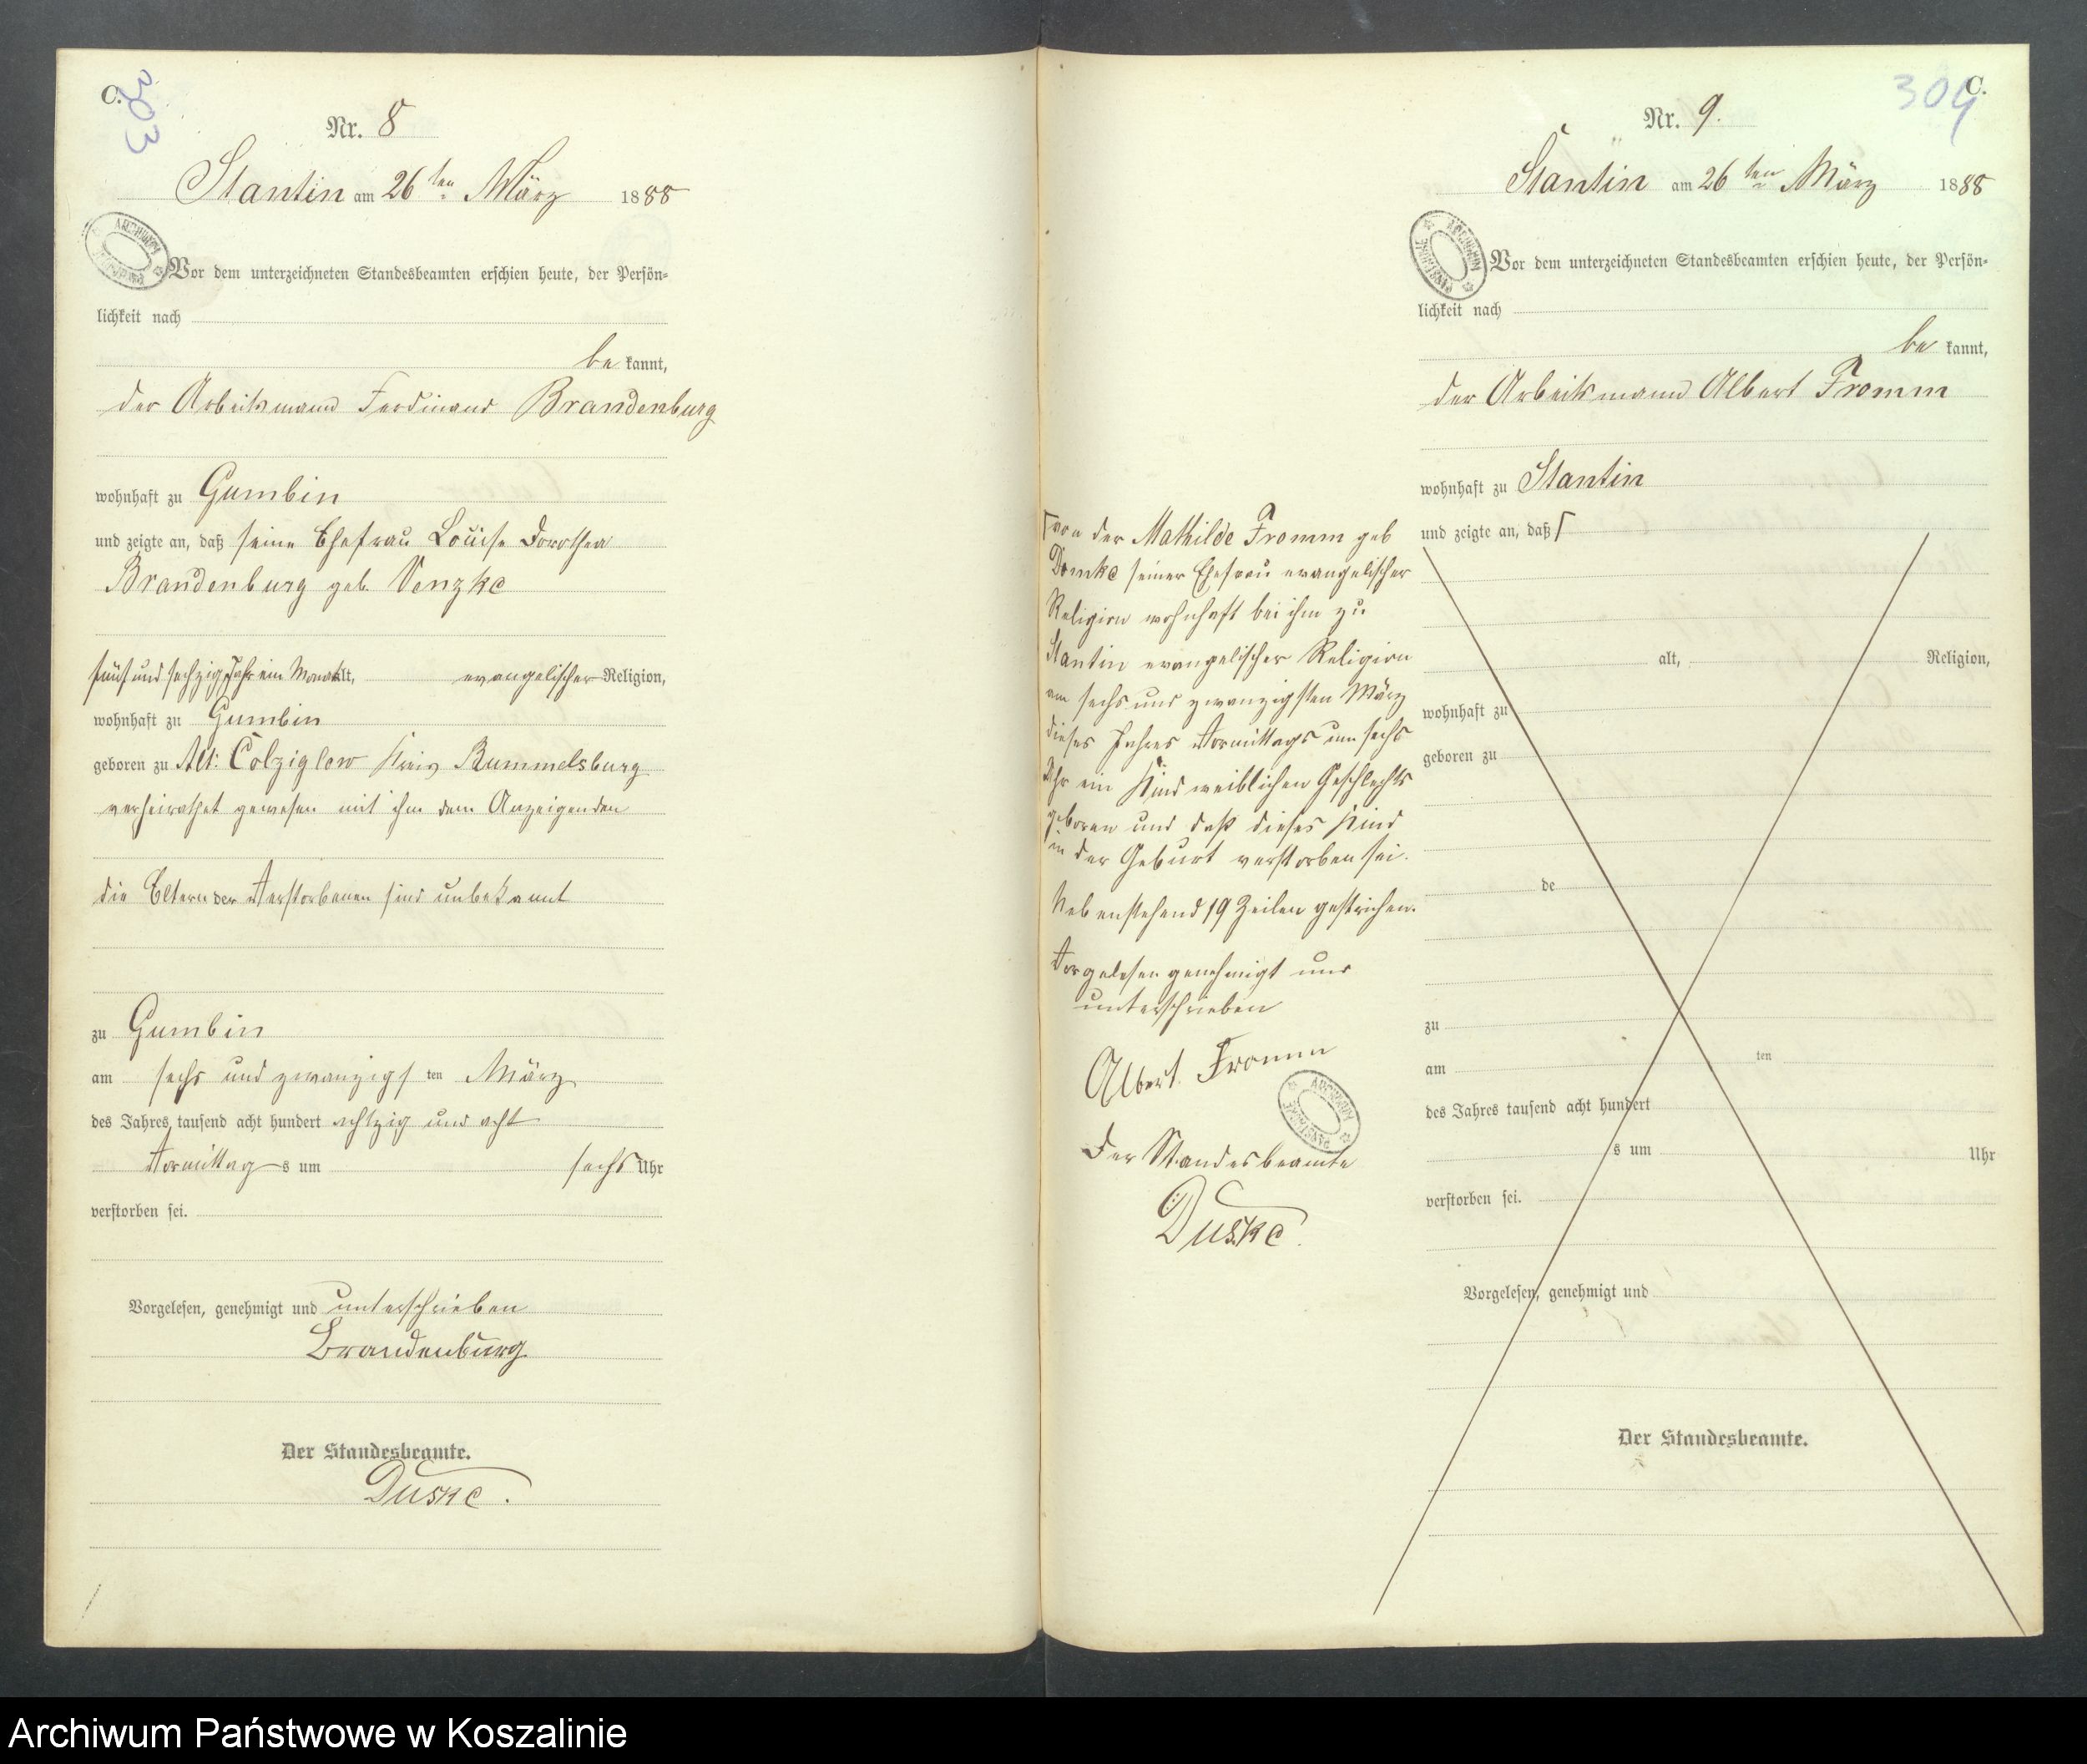 C.
303
Nr. 8
Stantin am 26 ten März 1888
Vor dem unterzeichneten Standesbeamten erschien heute, der Persön-
lichkeit nach
be kannt,
der Arbeitsmann Ferdinand Brandenburg
wohnhaft zu Gumbin
und zeigte an, daß seine Ehefrau Louise Dorothea
Brandenburg geb. Venzke
fünf und sechzig Jahr ein Monat alt, evangelischer Religion,
wohnhaft zu Gumbin
geboren zu Alt: Colziglow Kreis Rummelsburg
verheirathet gewesen mit ihm dem Anzeigenden
die Eltern der Verstorbenen sind unbekannt
zu Gumbin
am sechs und zwanzigs ten März
des Jahres tausend acht hundert achtzig und acht
Vormittag s um sechs Uhr
verstorben sei.
Vorgelesen, genehmigt und unterschrieben
Brandenburg
Der Standesbeamte.
Duske.
304
C.
Nr. 9.
Stantin am 26 ten März 1888
ARCHIWUM PAŃSTWOWE
Vor dem unterzeichneten Standesbeamten erschien heute, der Persön-
lichkeit nach
be kannt,
der Arbeitsmann Albert Fromm
wohnhaft zu Stantin
und zeigte an, daß
von der Mathilde Fromm geb
Domke seiner Ehefrau evangelischer
Religion wohnhaft bei ihm zu
Stantin evangelischer Religion
am sechs und zwanzigsten März
dieses Jahres Vormittags um sechs
Uhr ein Kind weiblichen Geschlechts
geboren und daß dieses Kind
in der Geburt verstorben sei.
Nebenstehend 19 Zeilen gestrichen.
Vorgelesen genehmigt und
unterschrieben
Albert Fromm
ARCHIWUM PAŃSTWOWE
Der Standesbeamte
Duske.
alt, Religion,
wohnhaft zu
geboren zu
de
zu
am ten
des Jahres tausend acht hundert
s um Uhr
verstorben sei.
Vorgelesen, genehmigt und
Der Standesbeamte.
Archiwum Państwowe w Koszalinie